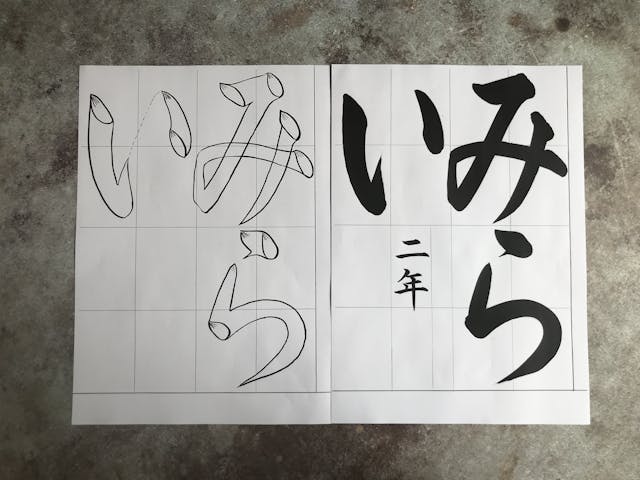 みら
い
二年
みら
い